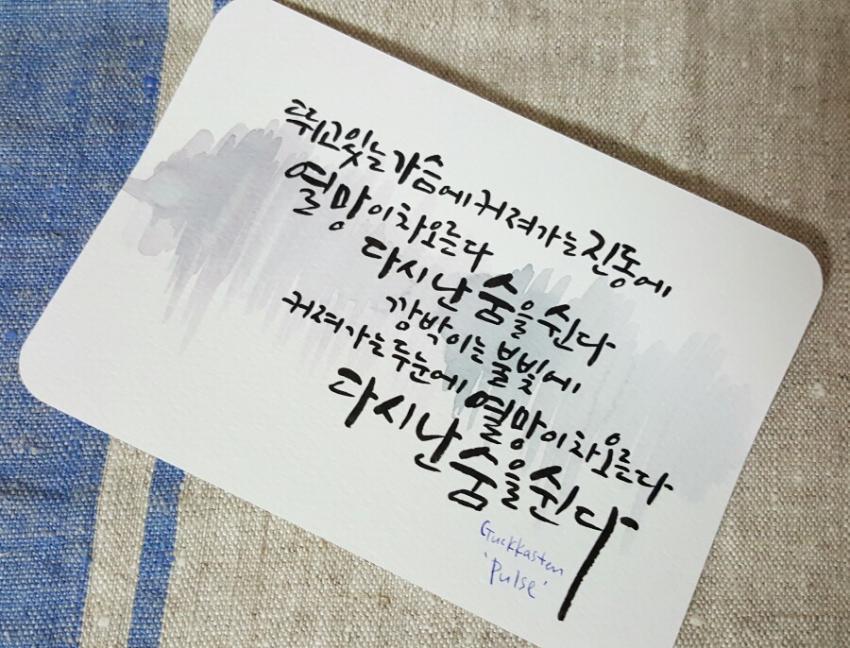 뛰고있는 가슴에 커져가는 진동에
열망이 차오른다
다시 난 숨을 쉰다
깜박이는 불빛에
커져가는 두 눈에 열망이 차오른다
다시 난 숨을 쉰다
Guckkasten
'Pulse'